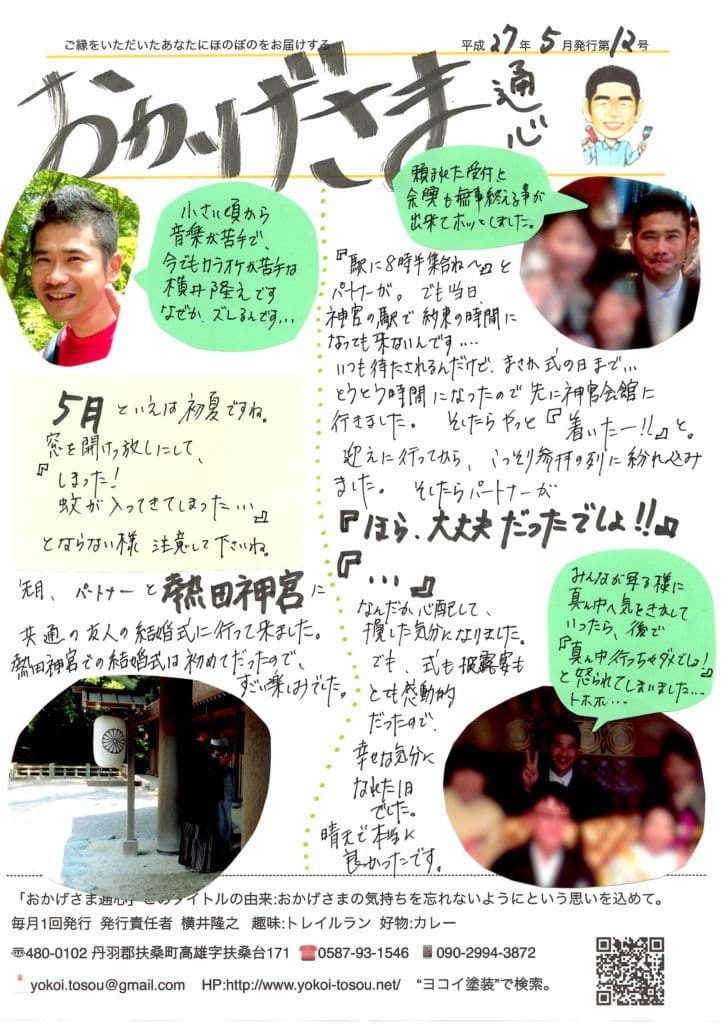 ご縁をいただいたあなたにほのぼのをお届けする
平成27年5月発行第12号
おかげさま
通心
小さい頃から
音楽が苦手で、
今でもカラオケが苦手な
横井隆之です
なぜか、ズレるんです…
5月といえば初夏ですね。
窓を開けっ放しにして、
『しまった!
蚊が入ってきてしまった…』
とならない様 注意して下さいね。
先月、パートナーと熱田神宮に
共通の友人の結婚式に行って来ました。
熱田神宮での結婚式は初めてだったので、
すごい楽しみでした。
頼まれた受付と
余興も無事終える事が
出来てホッとしました。
『駅に8時半集合ね〜』と
パートナーが。でも当日
神宮の駅で約束の時間に
なっても来ないんです…
いつも待たされるんだけど、まさか式の日まで…
とうとう時間になったので先に神宮会館に
行きました。そしたらやっと『着いたー!!』と。
迎えに行ってから、こっそり参拝の列に紛れ込み
ました。そしたらパートナーが
『ほら、大丈夫だったでしょ!!』
『…』
なんだか心配して、
損した気分になりました。
でも、式も披露宴も
とても感動的
だったので、
幸せな気分に
なれた1日
でした。
晴天で本当に
良かったです。
みんなが写る様に
真ん中へ気をきかして
いったら、後で
『真ん中行っちゃダメでしょ!』
と怒られてしまいました…
トホホ…
「おかげさま通心」このタイトルの由来:おかげさまの気持ちを忘れないようにという思いを込めて。
毎月1回発行 発行責任者 横井隆之 趣味:トレイルラン 好物:カレー
〒480-0102 丹羽郡扶桑町高雄字扶桑台171 ☎0587-93-1546 090-2994-3872
yokoi.tosou@gmail.com HP:http://www.yokoi-tosou.net/ “ヨコイ塗装”で検索。